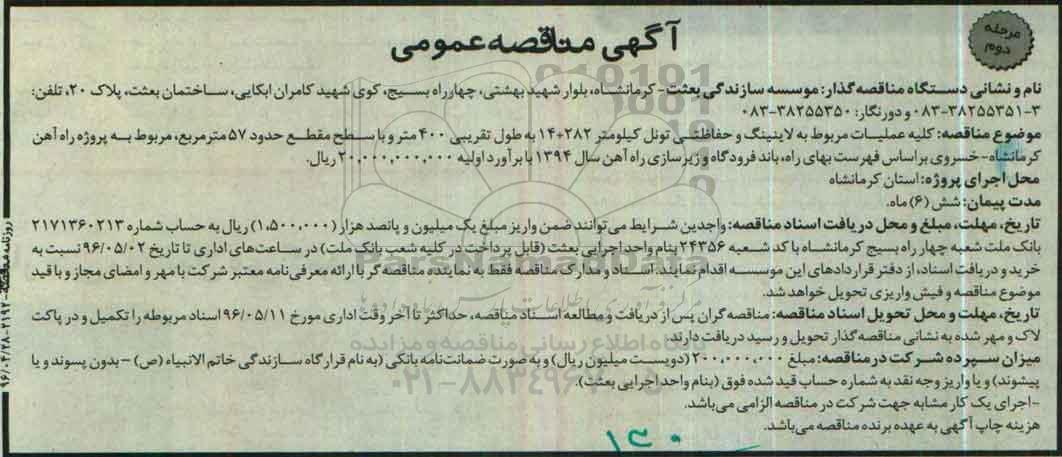 مرحله دوم
آگهی مناقصه عمومی
نام و نشانی دستگاه مناقصه گذار: موسسه سازندگی بعثت - کرمانشاه، بلوار شهید بهشتی، چهارراه بسیج، کوی شهید کامران ابکایی، ساختمان بعثت، پلاک ۲۰، تلفن:
۳-۳۸۲۵۵۳۵۱-۰۸۳ و دورنگار: ۳۸۲۵۵۳۵۰-۰۸۳
موضوع مناقصه: کلیه عملیات مربوط به لاینینگ و حفاظتی تونل کیلومتر ۲۸۲+۱۴ به طول تقریبی ۴۰۰ متر و با سطح مقطع حدود ۵۷ مترمربع، مربوط به پروژه راه آهن
کرمانشاه - خسروی براساس فهرست بهای راه، باند فرودگاه و زیرسازی راه آهن سال ۱۳۹۴ با برآورد اولیه ۲۰,۰۰۰,۰۰۰,۰۰۰ ریال.
محل اجرای پروژه: استان کرمانشاه
مدت پیمان: شش (۶) ماه.
تاریخ، مهلت، مبلغ و محل دریافت اسناد مناقصه: واجدین شرایط می توانند ضمن واریز مبلغ یک میلیون و پانصد هزار (۱,۵۰۰,۰۰۰) ریال به حساب شماره ۲۱۷۱۳۶۰۲۱۳
بانک ملت شعبه چهار راه بسیج کرمانشاه با کد شعبه ۲۴۳۵۶ بنام واحد اجرایی بعثت (قابل پرداخت در کلیه شعب بانک ملت) در ساعت های اداری تا تاریخ ۹۶/۰۵/۰۲ نسبت به
خرید و دریافت اسناد، از دفتر قراردادهای این موسسه اقدام نمایند. اسناد و مدارک مناقصه فقط به نماینده مناقصه گر با ارائه معرفی نامه معتبر شرکت با مهر و امضای مجاز و با قید
موضوع مناقصه و فیش واریزی تحویل خواهد شد.
تاریخ، مهلت و محل تحویل اسناد مناقصه: مناقصه گران پس از دریافت و مطالعه اسناد مناقصه، حداکثر تا آخر وقت اداری مورخ ۹۶/۰۵/۱۱ اسناد مربوطه را تکمیل و در پاکت
لاک و مهر شده به نشانی مناقصه گذار تحویل و رسید دریافت دارند.
میزان سپرده شرکت در مناقصه: مبلغ ۲۰۰,۰۰۰,۰۰۰ (دویست میلیون ریال) و به صورت ضمانت نامه بانکی (به نام قرارگاه سازندگی خاتم الانبیاء (ص) – بدون پسوند و یا
پیشوند) و یا واریز وجه نقد به شماره حساب قید شده فوق (بنام واحد اجرایی بعثت).
- اجرای یک کار مشابه جهت شرکت در مناقصه الزامی می باشد.
هزینه چاپ آگهی به عهده برنده مناقصه می باشد.
۱۳۰
ParsNamadData
پایگاه اطلاع رسانی مناقصه و مزایده